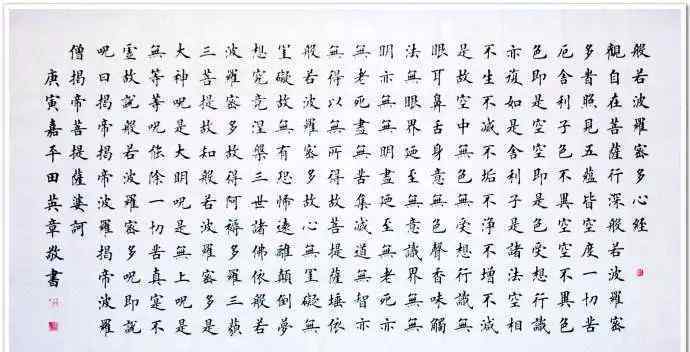 般若波羅密多心經
觀自在菩薩行深般若波羅密
多旹照見五蘊皆空度一切苦
厄舍利子色不異空空不異色
色即是空空即是色受想行識
亦復如是舍利子是諸法空相
不生不滅不垢不淨不增不減
是故空中無色無受想行識無
眼耳鼻舌身意無色聲香味觸
法無眼界迺至無意識界無無
明亦無無明盡迺至無老死亦
無老死盡無苦集滅道無智亦
無得以無所得故菩提薩埵依
般若波羅密多故心無罣礙無
罣礙故無有恐怖遠離顛倒夢
想究竟涅槃三世諸佛依般若
波羅密多故得阿耨多羅三藐
三菩提故知般若波羅密多是
大神呪是大明呪是無上呪是
無等等呪能除一切苦真實不
虛故說般若波羅密多呪即說
呪曰揭帝揭帝波羅揭帝波羅
僧揭帝菩提薩婆訶
庚寅嘉平田英章敬書